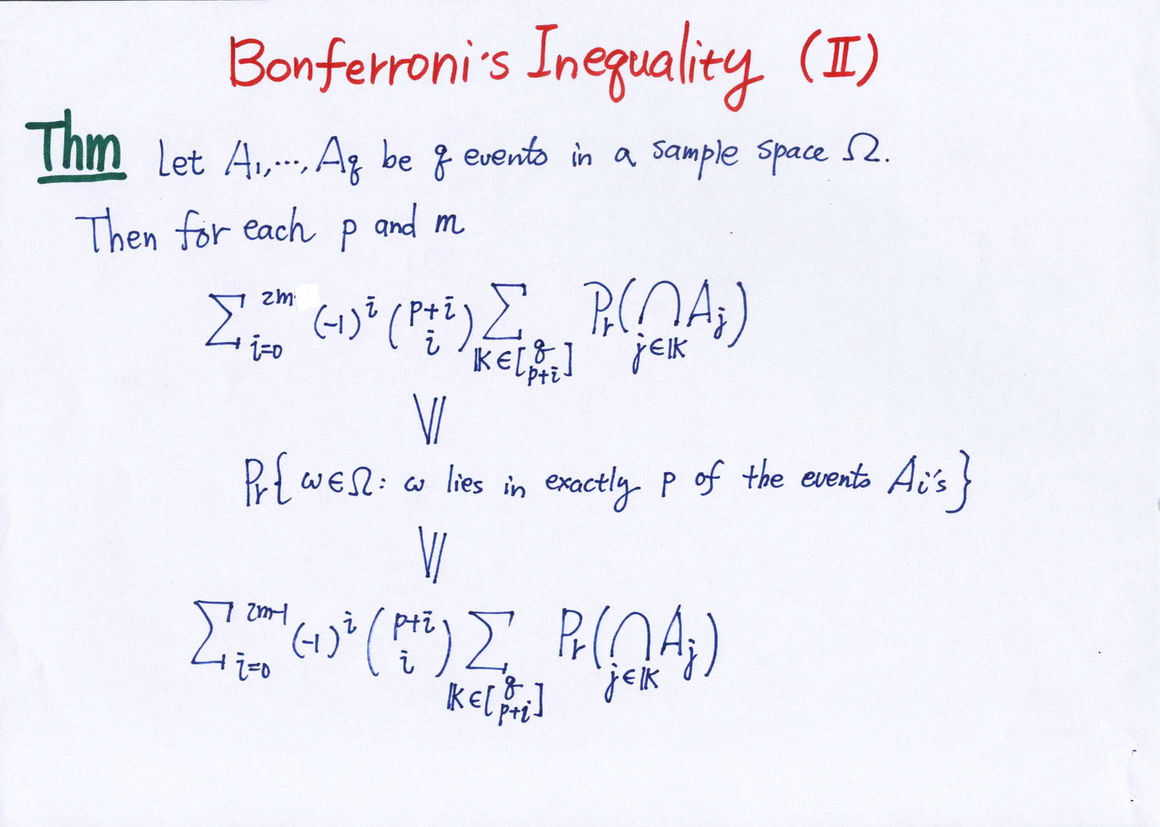 Bonferroni's Inequality (II)
Thm Let A₁,…, A_q be q events in a sample space Ω.
Then for each p and m
∑_{i=0}^{2m} (-1)^i (p+i choose i) ∑_{𝕂∈[q p+i]} Pr(⋂_{j∈𝕂} A_j)
≥
Pr{ω∈Ω: ω lies in exactly p of the events A_i's}
≥
∑_{i=0}^{2m-1} (-1)^i (p+i choose i) ∑_{𝕂∈[q p+i]} Pr(⋂_{j∈𝕂} A_j)